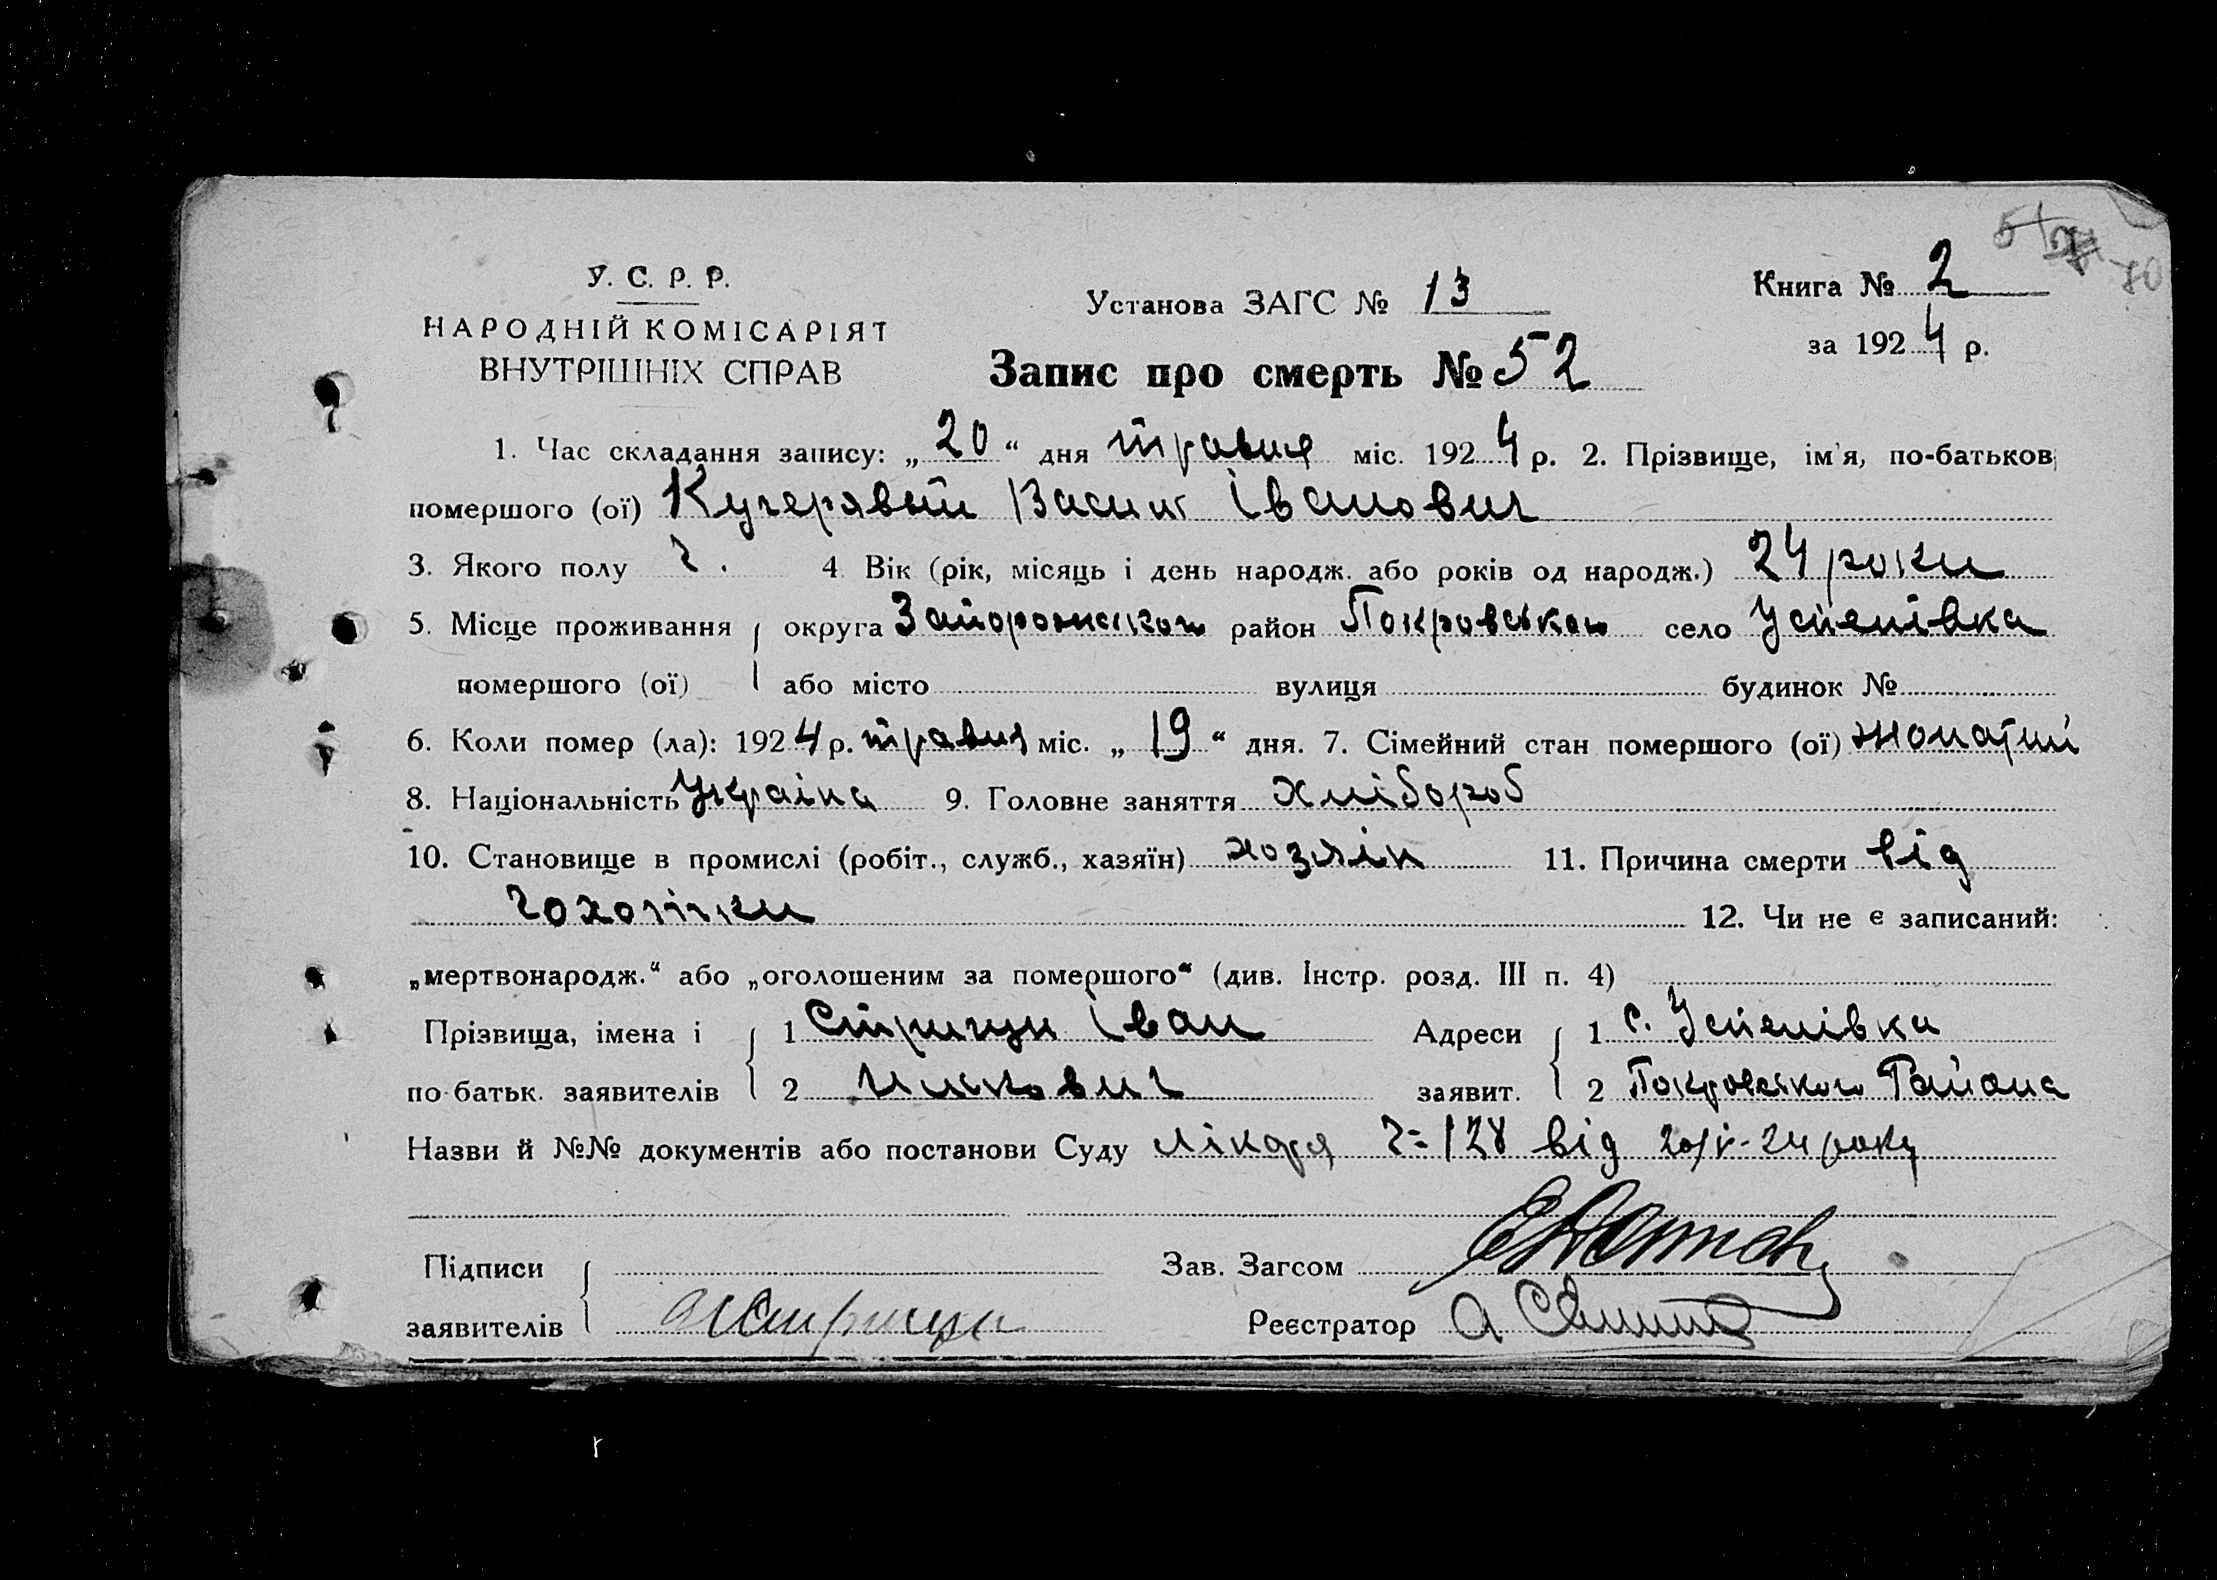 У. С. Р. Р.
НАРОДНІЙ КОМІСАРІЯТ
ВНУТРІШНІХ СПРАВ
Установа ЗАГС № 13
Книга № 2
за 1924 р.
Запис про смерть № 52
1. Час складання запису: „20“ дня травня міс. 1924 р. 2. Прізвище, ім'я, по-батькові
помершого (ої) Кучерявый Васил Іванович
3. Якого полу ч. 4 Вік (рік, місяць і день народж. або років од народж.) 24 роки
5. Місце проживання округа Запорожського район Покровського село Успенівка
помершого (ої) або місто вулиця будинок №
6. Коли помер (ла): 1924 р. травня міс. „19“ дня. 7. Сімейний стан помершого (ої) жонатый
8. Національність Україна 9. Головне заняття хлібороб
10. Становище в промислі (робіт., служб., хазяїн) хозяїн 11. Причина смерти від
чохотки 12. Чи не є записаний:
„мертвонародж.“ або „оголошеним за помершого“ (див. Інстр. розд. III п. 4)
Прізвища, імена і 1 Стрищун Іван Адреси 1 с. Успенівка
по-батьк. заявителів 2 заявит. 2 Покровського Района
Назви й №№ документів або постанови Суду лікаря ч=128 від 20/V-24 року
Підписи Зав. Загсом
заявителів Реєстратор